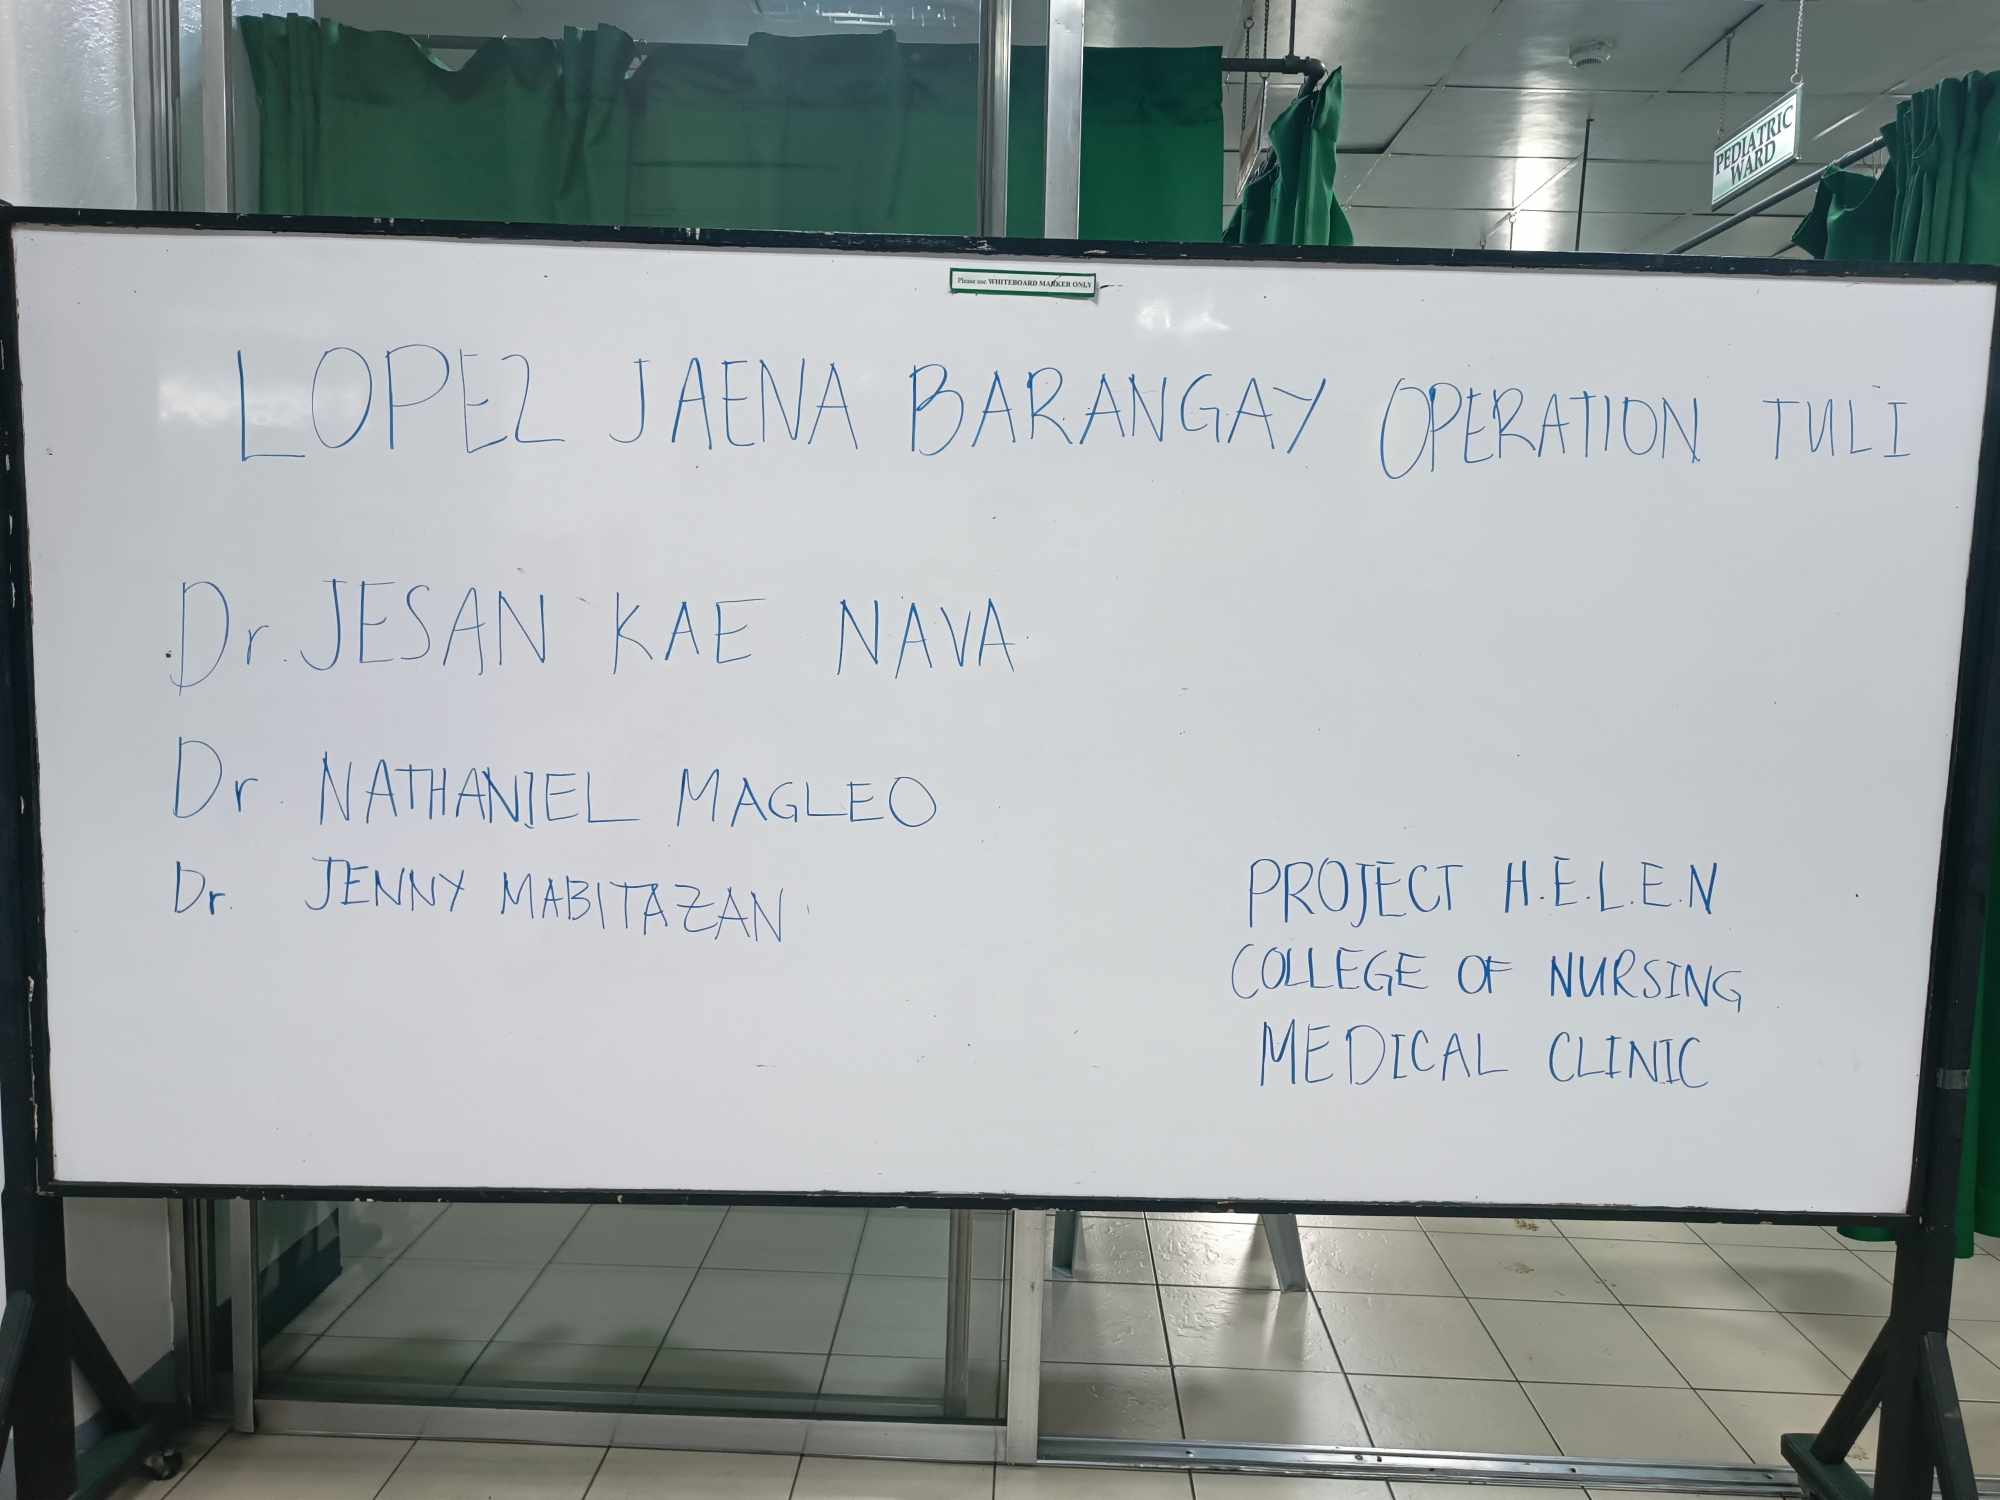 PEDIATRIC
WARD
Please use WHITEBOARD MARKER ONLY
LOPEZ JAENA BARANGAY OPERATION TULI
Dr. JESAN KAE NAVA
Dr. NATHANIEL MAGLEO
Dr. JENNY MABITAZAN
PROJECT H.E.L.E.N
COLLEGE OF NURSING
MEDICAL CLINIC